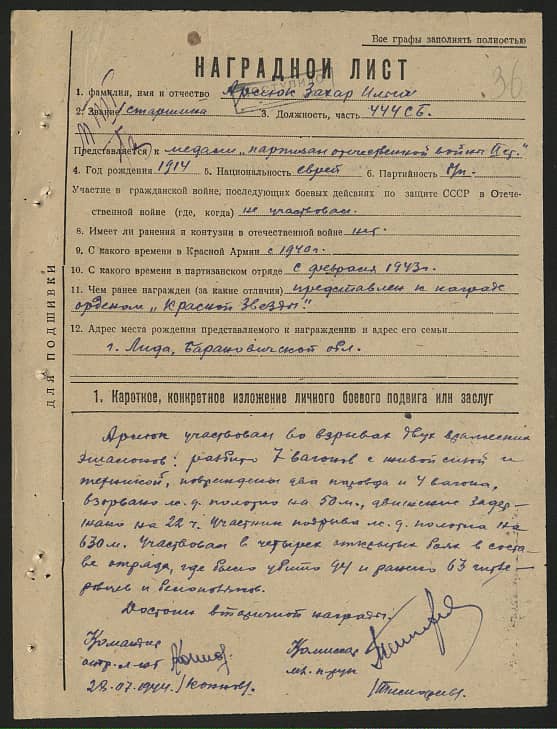 Все графы заполнять полностью
36
НАГРАДНОЙ ЛИСТ
1. фамилия, имя и отчество Арсюк Захар Ильич
2. Звание старшина 3. Должность, часть 444СБ.
Представляется к медали „партизан отечественной войны II ст."
4. Год рождения 1914 5. Национальность еврей 6. Партийность б/п.
Участие в гражданской войне, последующих боевых дейсвиях по защите СССР в Отече-
ственной войне (где, когда) не участвовал.
8. Имеет ли ранения и контузии в отечественной войне нет.
9. С какого времени в Красной Армии с 1940г.
10. С какого времени в партизанском отряде с февраля 1943г.
11. Чем ранее награжден (за какие отличия) представлен к награде
орденом „Красной Звезды".
12. Адрес места рождения представляемого к награждению и адрес его семьи
г. Лида, Барановичской обл.
ДЛЯ ПОДШИВКИ
1. Короткое, конкретное изложение личного боевого подвига или заслуг
Арсюк участвовал во взрывах двух вражеских
эшелонов: разбито 7 вагонов с живой силой и
техникой, повреждены два паровоза и 4 вагона,
взорвано ж.д. полотно на 50м., движение задер-
жано на 22 ч. Участник подрыва ж.д. полотна на
630м. Участвовал в четырех открытых боях в соста-
ве отряда, где было убито 94 и ранено 63 гитле-
ровцев и
Достоин вторичной награды.
Командир Комиссар
22.07.1944